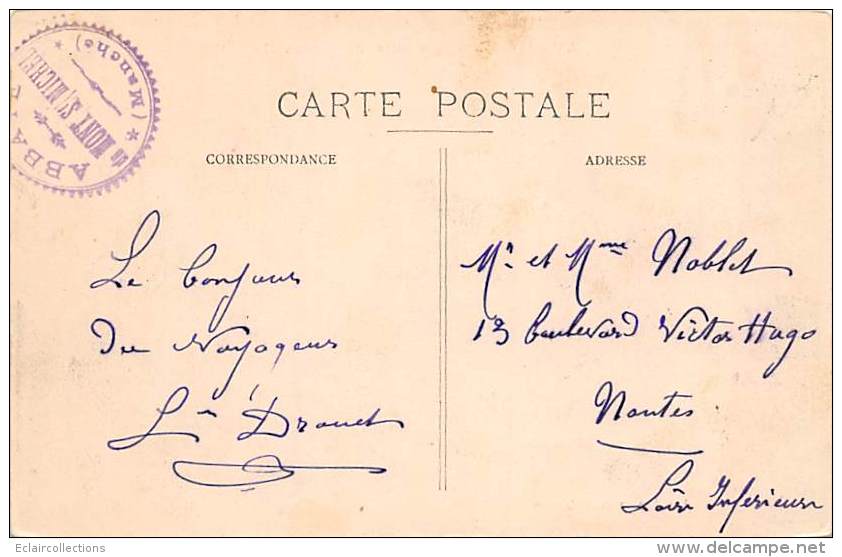 ABBAYE
du MONT ST MICHEL
* (Manche) *
CARTE POSTALE
CORRESPONDANCE
ADRESSE
Le bonjour
du Voyageur
L. Drouet
Mr. et Mme Noblet
13 boulevard Victor Hugo
Nantes
Loire Inferieure
Eclaircollections
www.delcampe.net